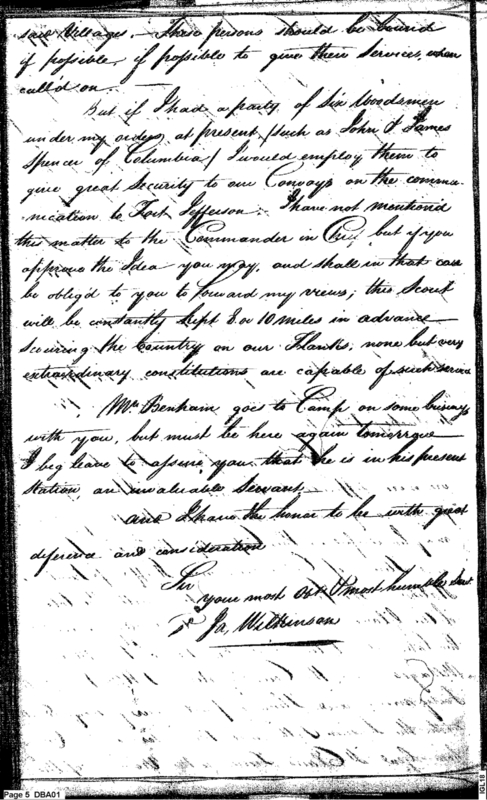 said Villages. — These persons should be bound
if possible, if possible to give their Services, when
call'd on —
But if I had a party of Six Woodsmen
under my orders at present (such as John & James
Spencer of Columbia) I would employ them to
give great Security to our Convoys on the commu-
nication to Fort Jefferson. I have not mention'd
this matter to the Commander in Chief, but if you
approve the Idea you may, and shall in that case
be oblig'd to you to forward my views; this Scout
will be constantly kept 8 or 10 miles in advance
Scouring the Country on our Flanks; none but very
extraordinary constitutions are capable of such service
Mr Benham goes to Camp on some business
with you, but must be here again tomorrow
I beg leave to assure you that he is in his present
Station an invaluable Servant
and I have the honor to be with great
deference and consideration
Sir
your most Obt & most humble Servt
Ja, Wilkinson
Page 5 DBA01
IGL18